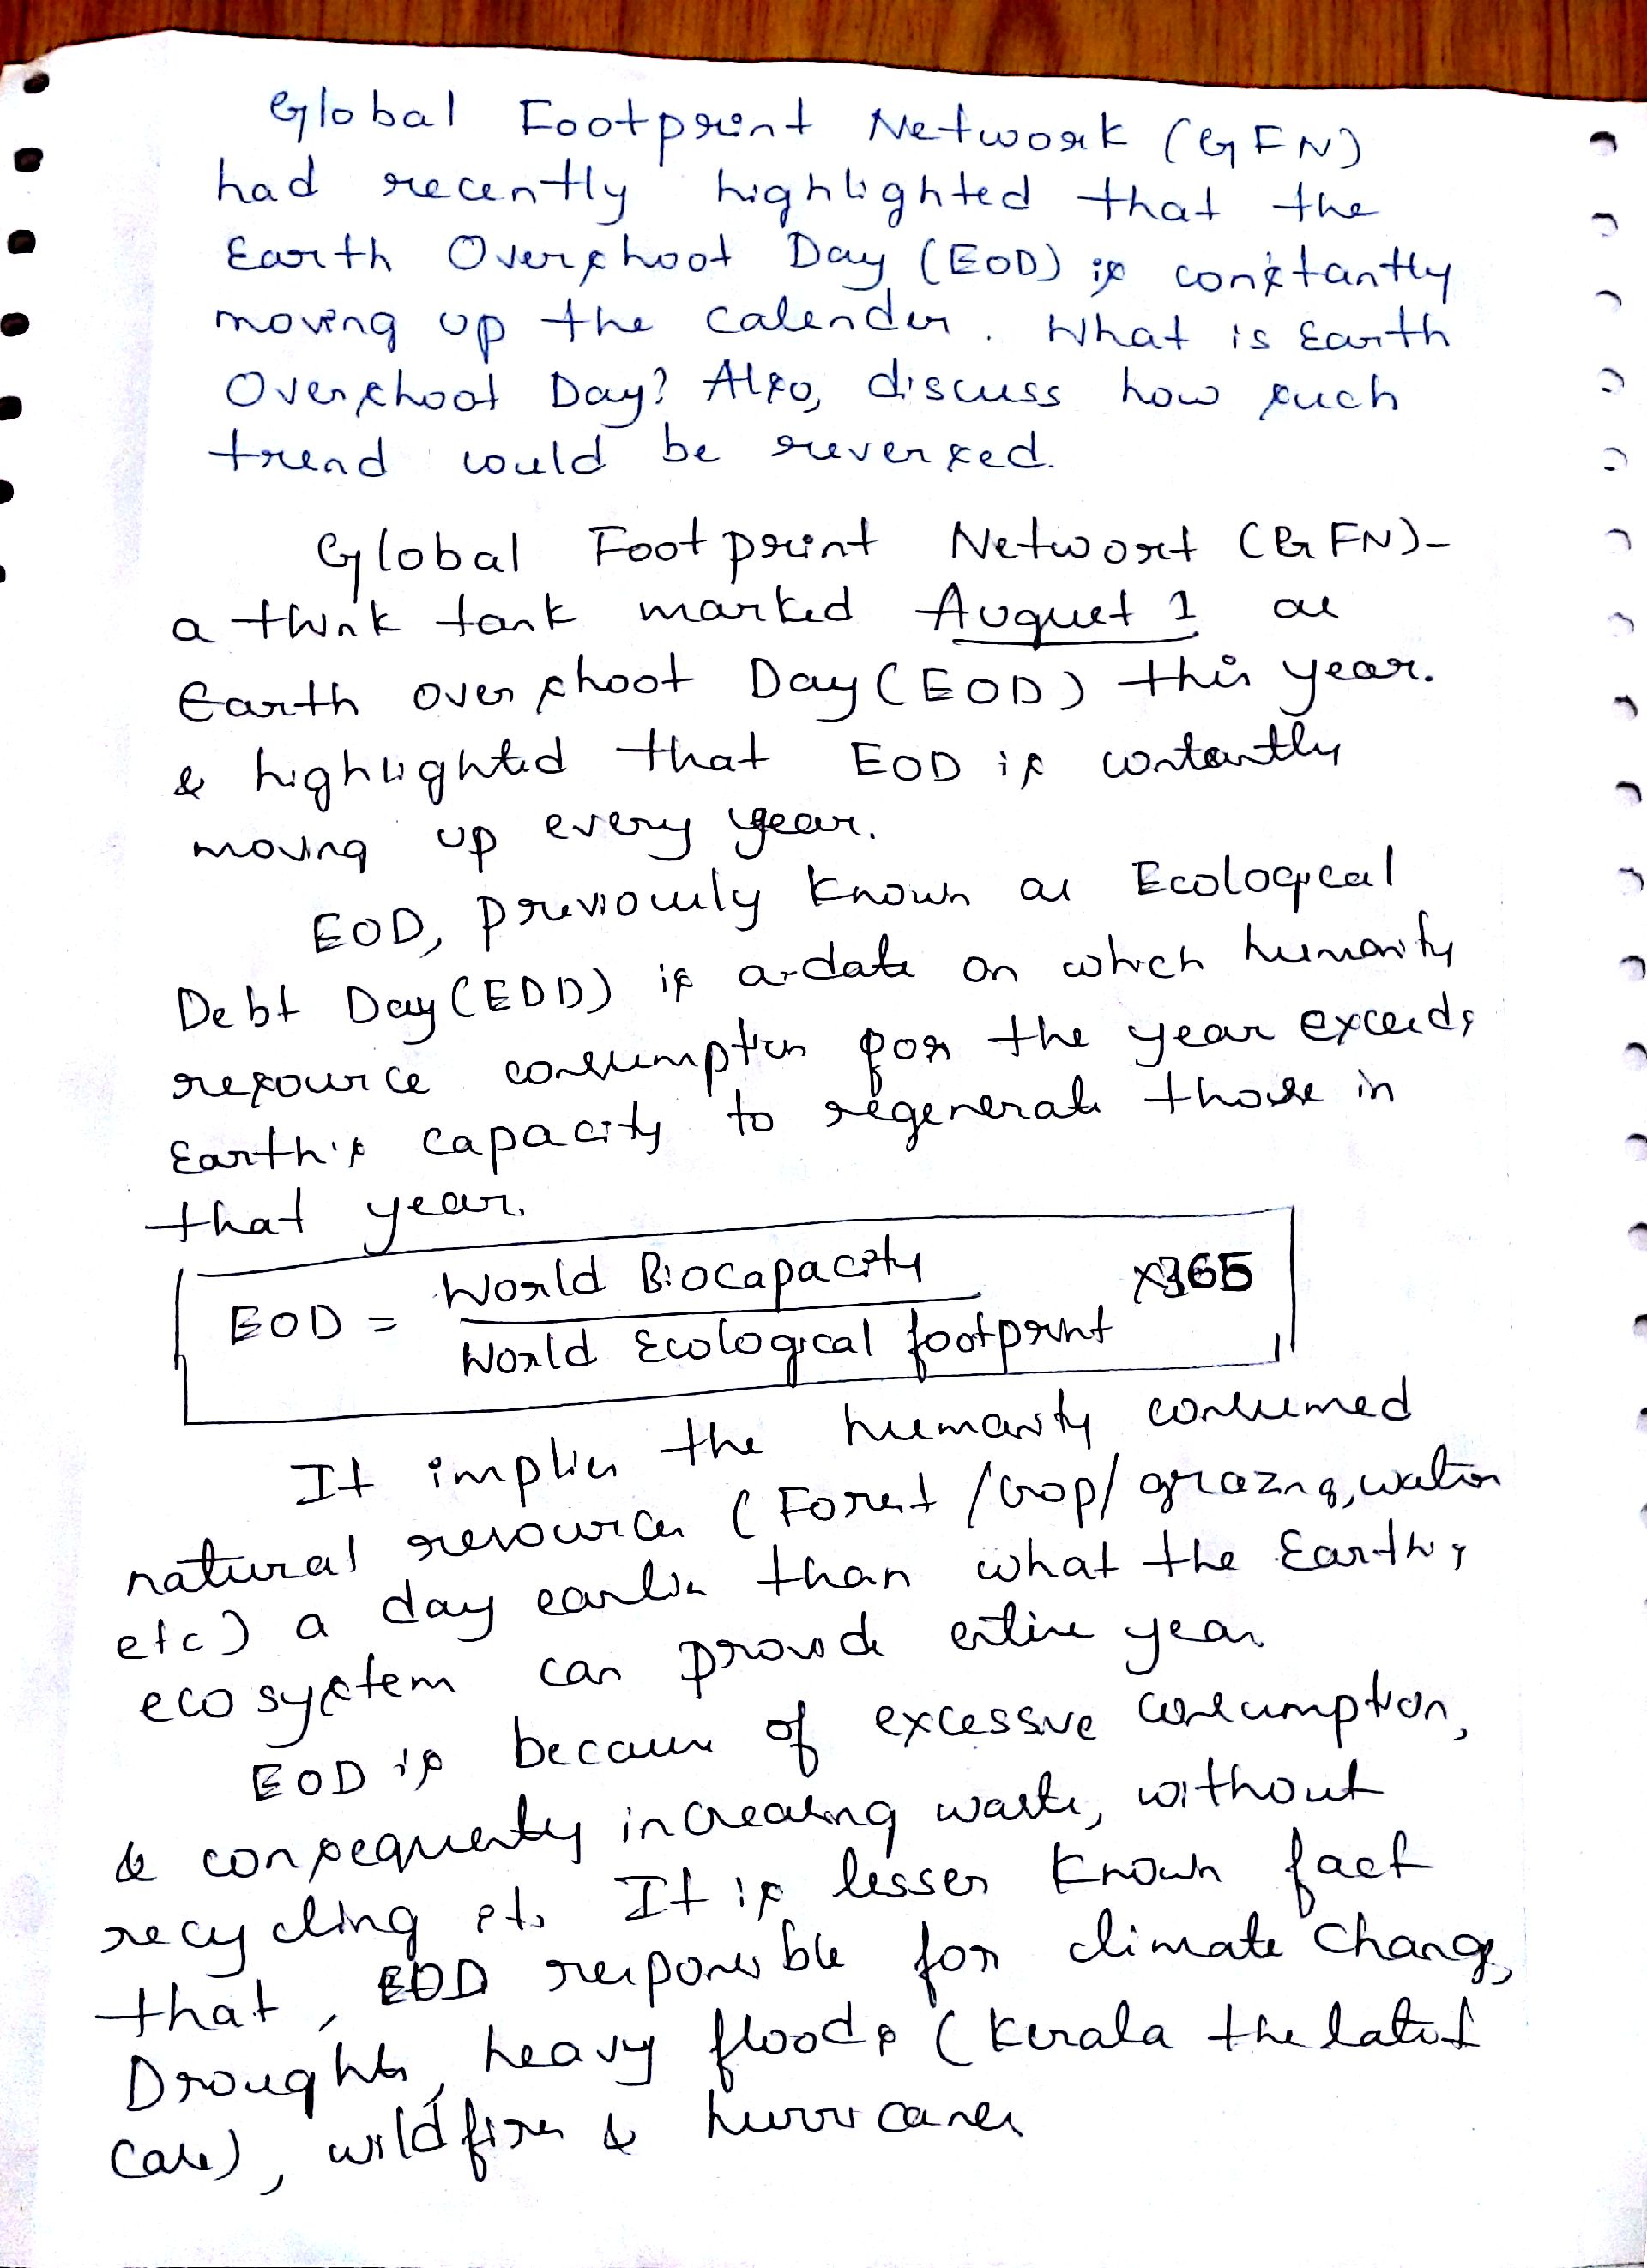 Global Footprint Network (GFN)
had recently highlighted that the
Earth Overshoot Day (EOD) is constantly
moving up the calender. What is Earth
Overshoot Day? Also, discuss how such
trend could be reversed.
Global Footprint Network (GFN)-
a think tank marked August 1 as
Earth overshoot Day (EOD) this year.
& highlighted that EOD is contantly
moving up every year.
EOD, previously known as Ecological
Debt Day (EDD) is a date on which humanity
resource consumption for the year exceeds
Earth's capacity to regenerate those in
that year.
EOD = World Biocapacity / World Ecological footprint x365
It implies the humanity consumed
natural resources (Forest/crop/grazing, water
etc) a day earlier than what the Earth's
ecosystem can provide entire year
EOD is because of excessive consumption,
& consequently increasing waste, without
recycling etc. It is lesser known fact
that, EOD responsible for climate change,
Droughts, heavy floods (Kerala the latest
case), wildfires & hurricanes